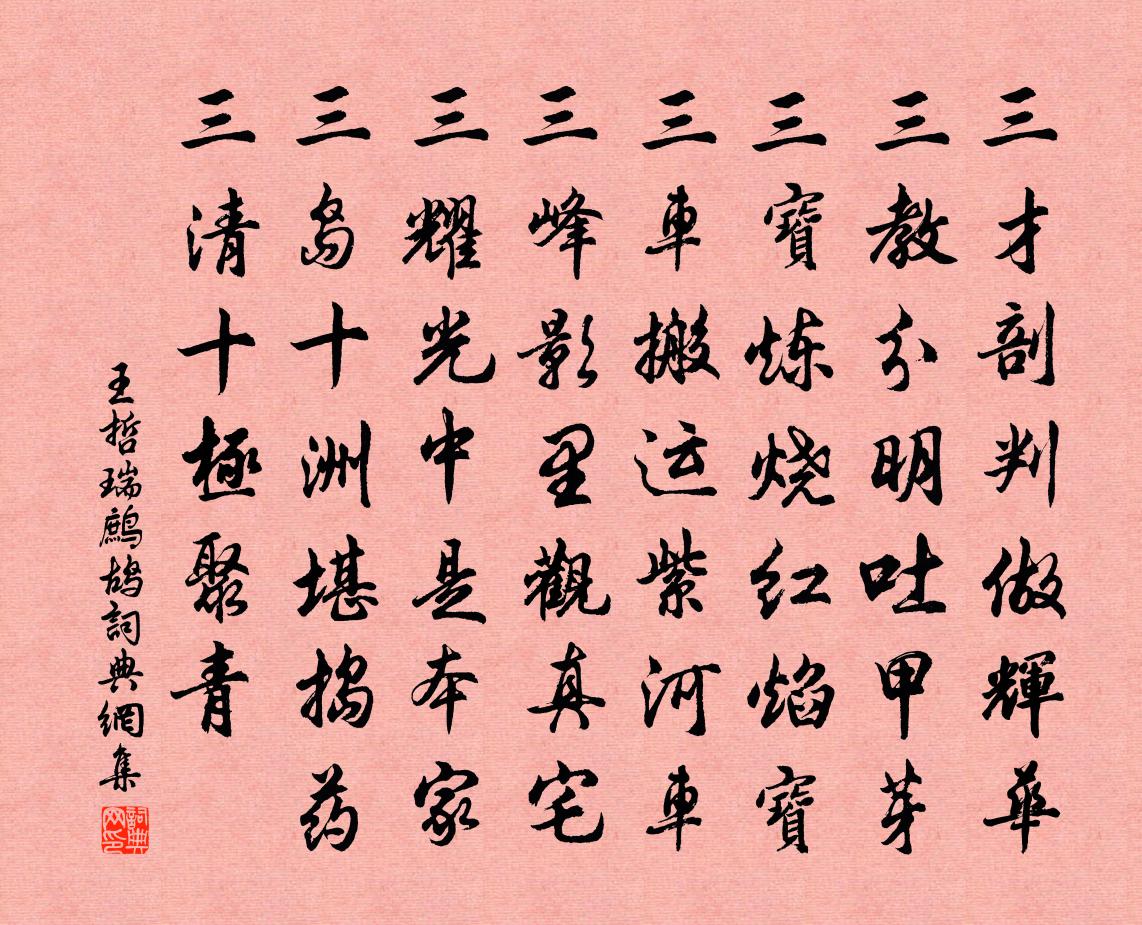 三才剖判做輝華
三教分明吐甲芽
三寶炼烧红焰寶
三車搬运紫河車
三峰影里觀真宅
三耀光中是本家
三島十洲堪搗药
三清十極聚青
王哲瑞鷓鴣詞典網集
詞典网印